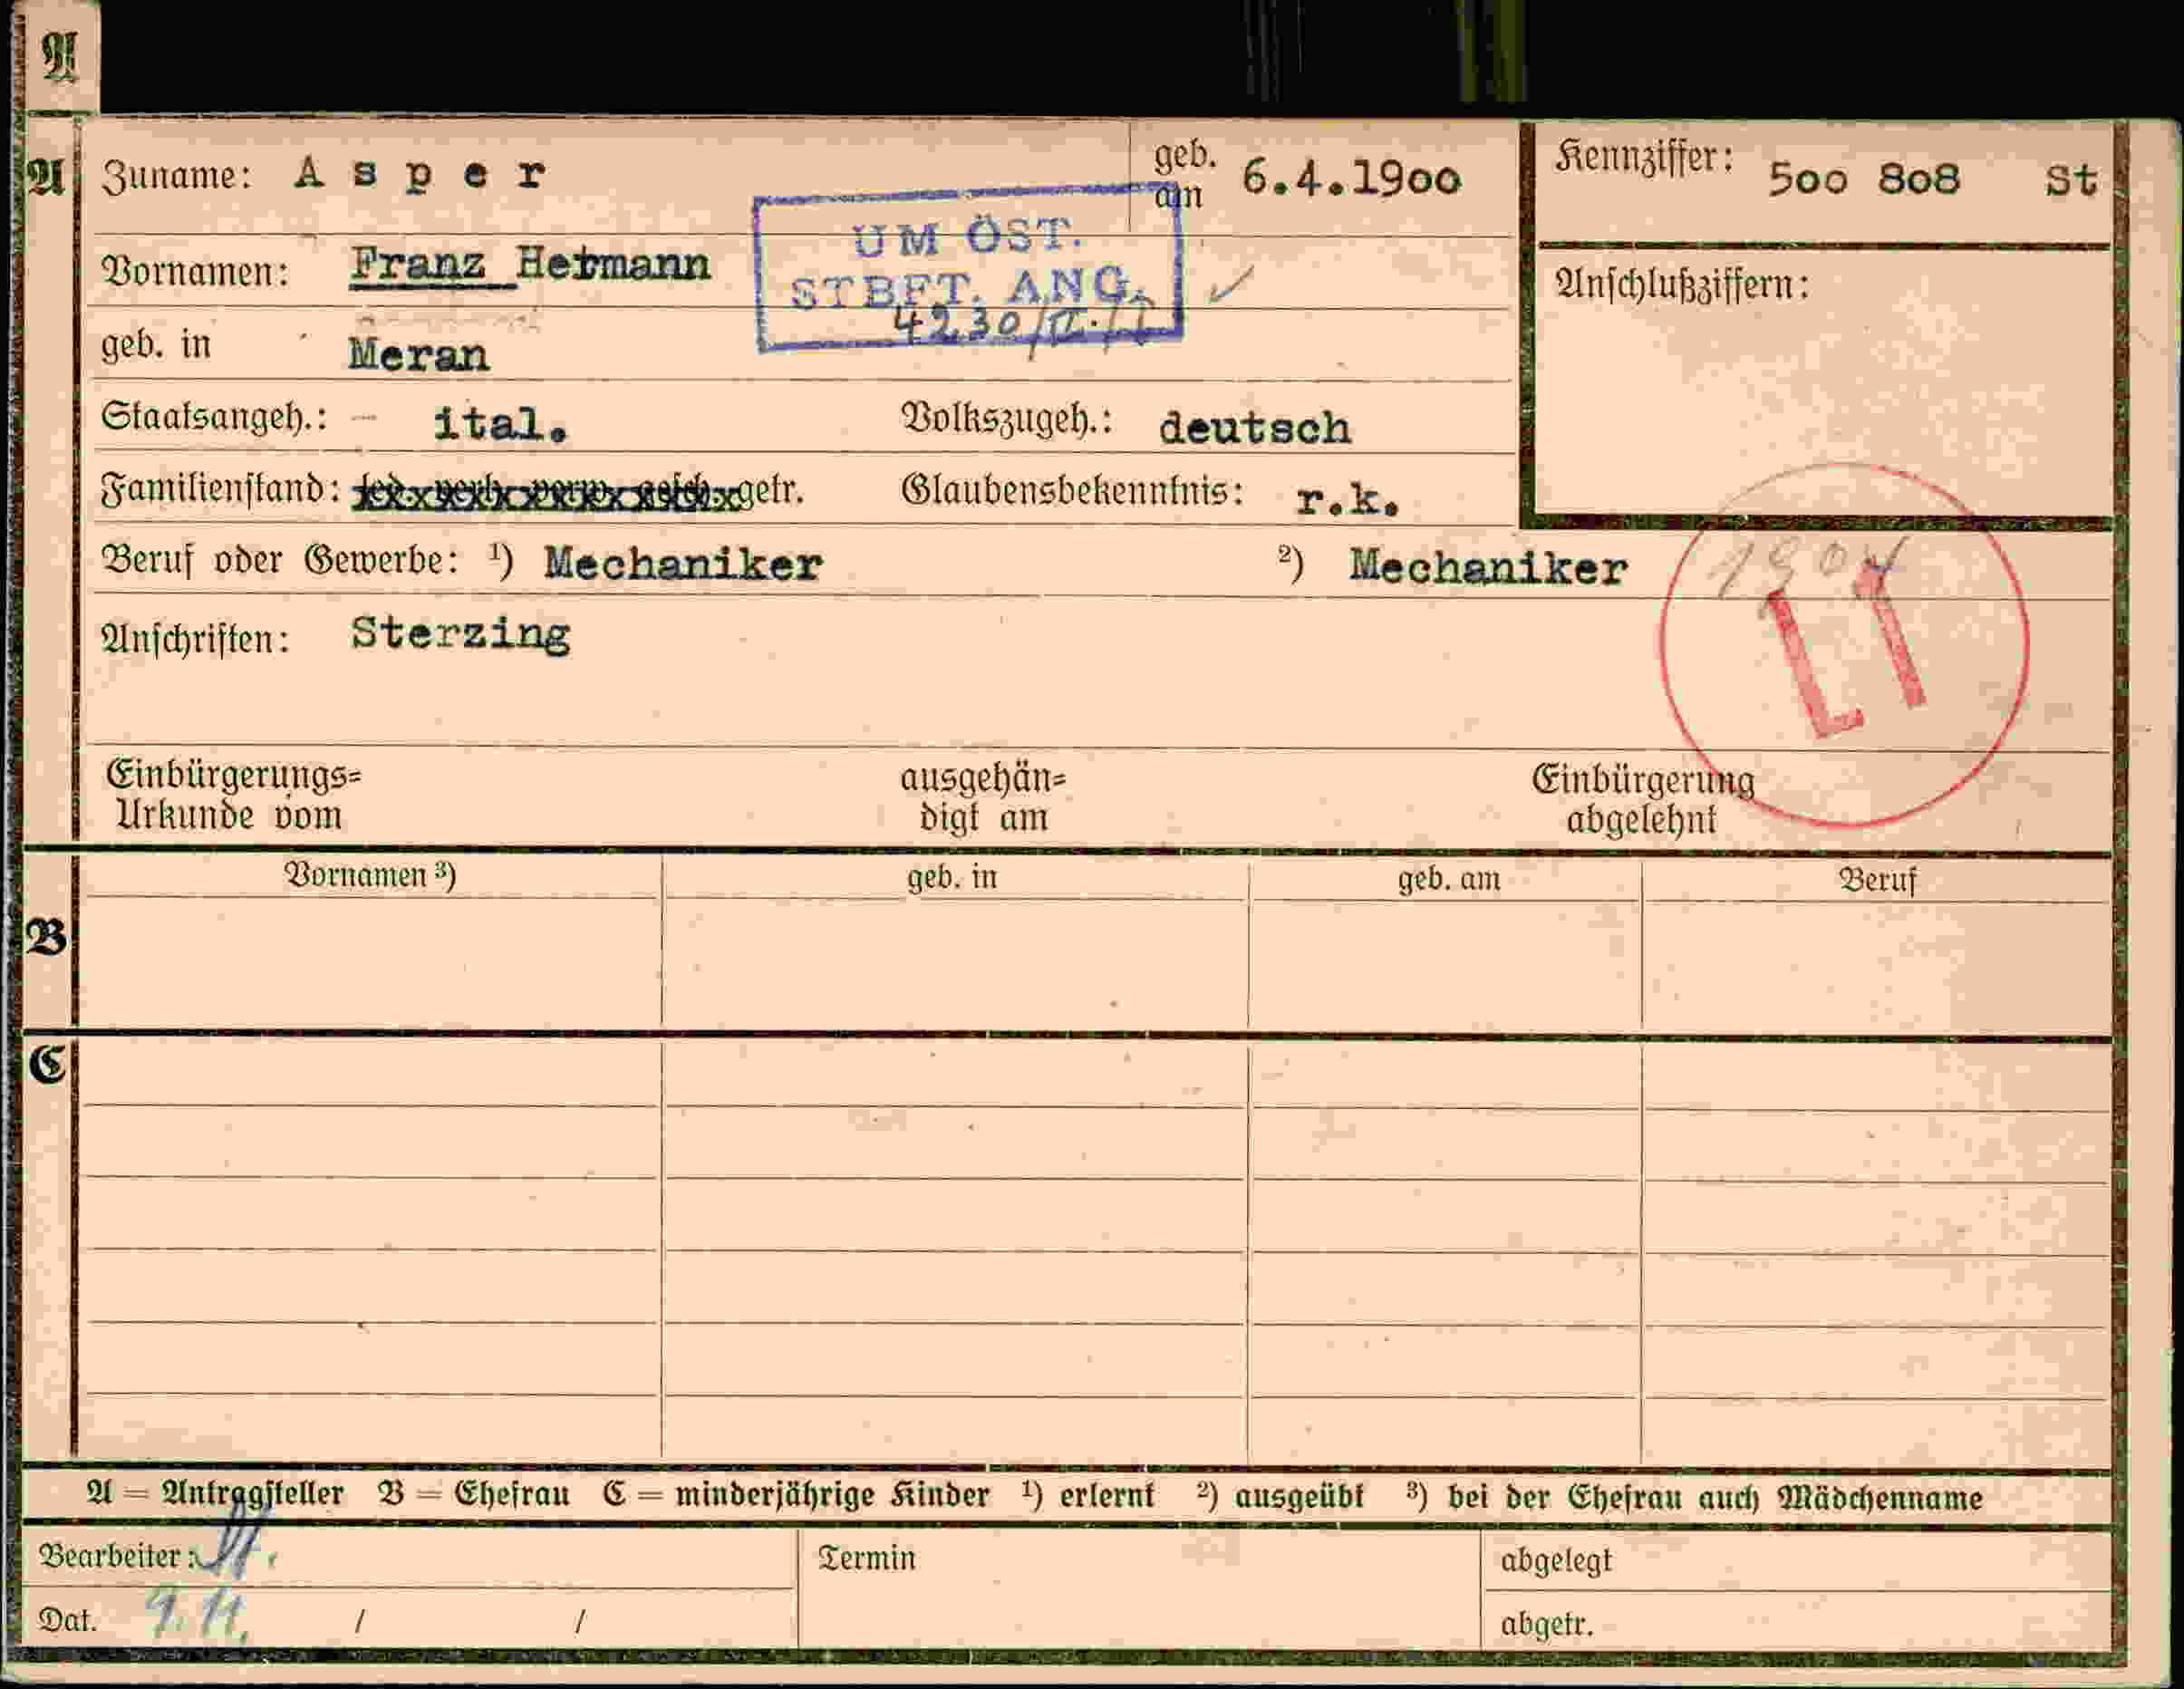 A
A
Zuname: A s p e r
geb. am 6.4.1900
Kennziffer: 500 808 St
UM ÖST.
STBFT. ANG.
4230/II./1
Vornamen: Franz Hermann
Anschlußziffern:
geb. in Meran
Staatsangeh.: ital. Volkszugeh.: deutsch
Familienstand: led. verh. verw. gesch. getr. Glaubensbekenntnis: r.k.
Beruf oder Gewerbe: ¹) Mechaniker ²) Mechaniker
Anschriften: Sterzing
Einbürgerungs= ausgehän= Einbürgerung
Urkunde vom digt am abgelehnt
Vornamen ³) geb. in geb. am Beruf
B
C
A = Antragsteller B = Ehefrau C = minderjährige Kinder ¹) erlernt ²) ausgeübt ³) bei der Ehefrau auch Mädchenname
Bearbeiter: Termin abgelegt
Dat. 9.11. / / abgetr.